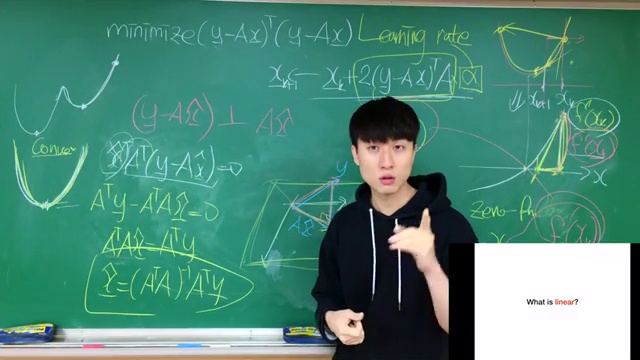 minimize (y-Ax)ᵀ(y-Ax)
Learning rate
x_{k+1} ← x_k + 2(y-Ax)ᵀA α
(y-Ax̂) ⊥ Ax̂
Convex
x̂ᵀAᵀ(y-Ax̂)=0
Aᵀy-AᵀAx̂=0
AᵀAx̂=Aᵀy
x̂=(AᵀA)⁻¹Aᵀy
y
Ax̂
x_{k+1} x_k
f'(x_k)
f(x_k)
x
f'(x_k)
What is linear?